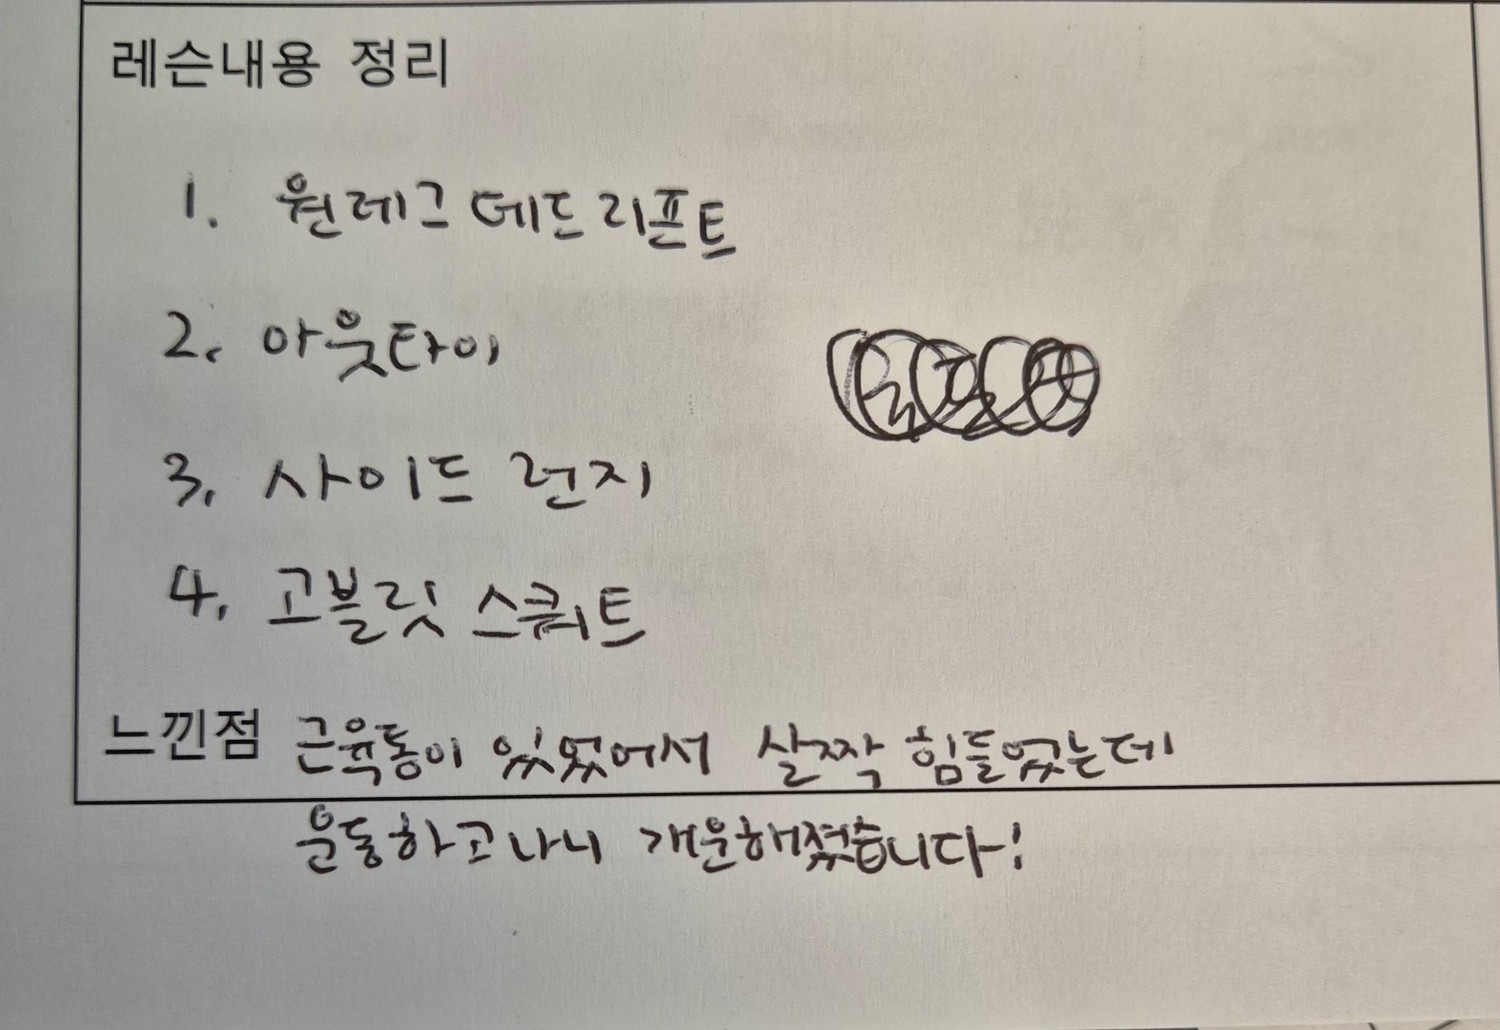 레슨내용 정리
1. 원레그 데드리프트
2. 아웃타이
3. 사이드 런지
4. 고블릿 스쿼트
느낀점 근육통이 있었어서 살짝 힘들었는데
운동하고나니 개운해졌습니다!